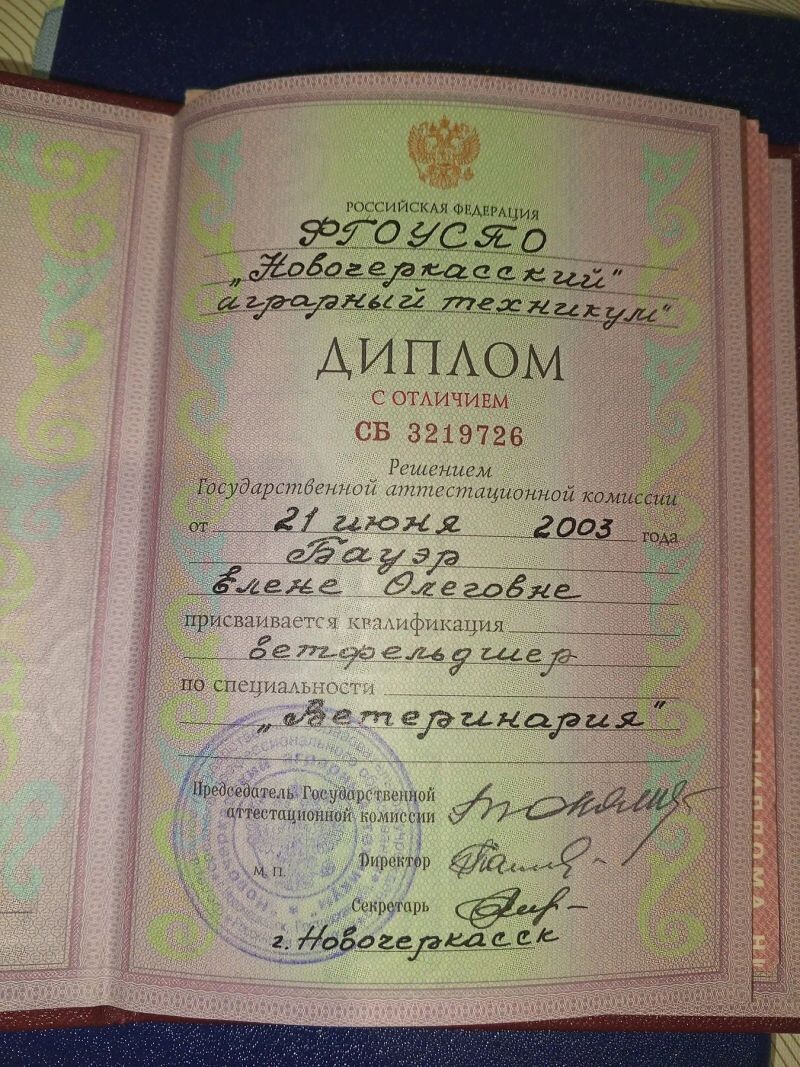 РОССИЙСКАЯ ФЕДЕРАЦИЯ
ФГОУСПО
„Новочеркасский"
аграрный техникум"
ДИПЛОМ
С ОТЛИЧИЕМ
СБ 3219726
Решением
Государственной аттестационной комиссии
от 21 июня 2003 года
Бауэр
Елене Олеговне
присваивается квалификация
ветфельдшер
по специальности
„Ветеринария"
Председатель Государственной
аттестационной комиссии
Директор
М. П.
Секретарь
г. Новочеркасск